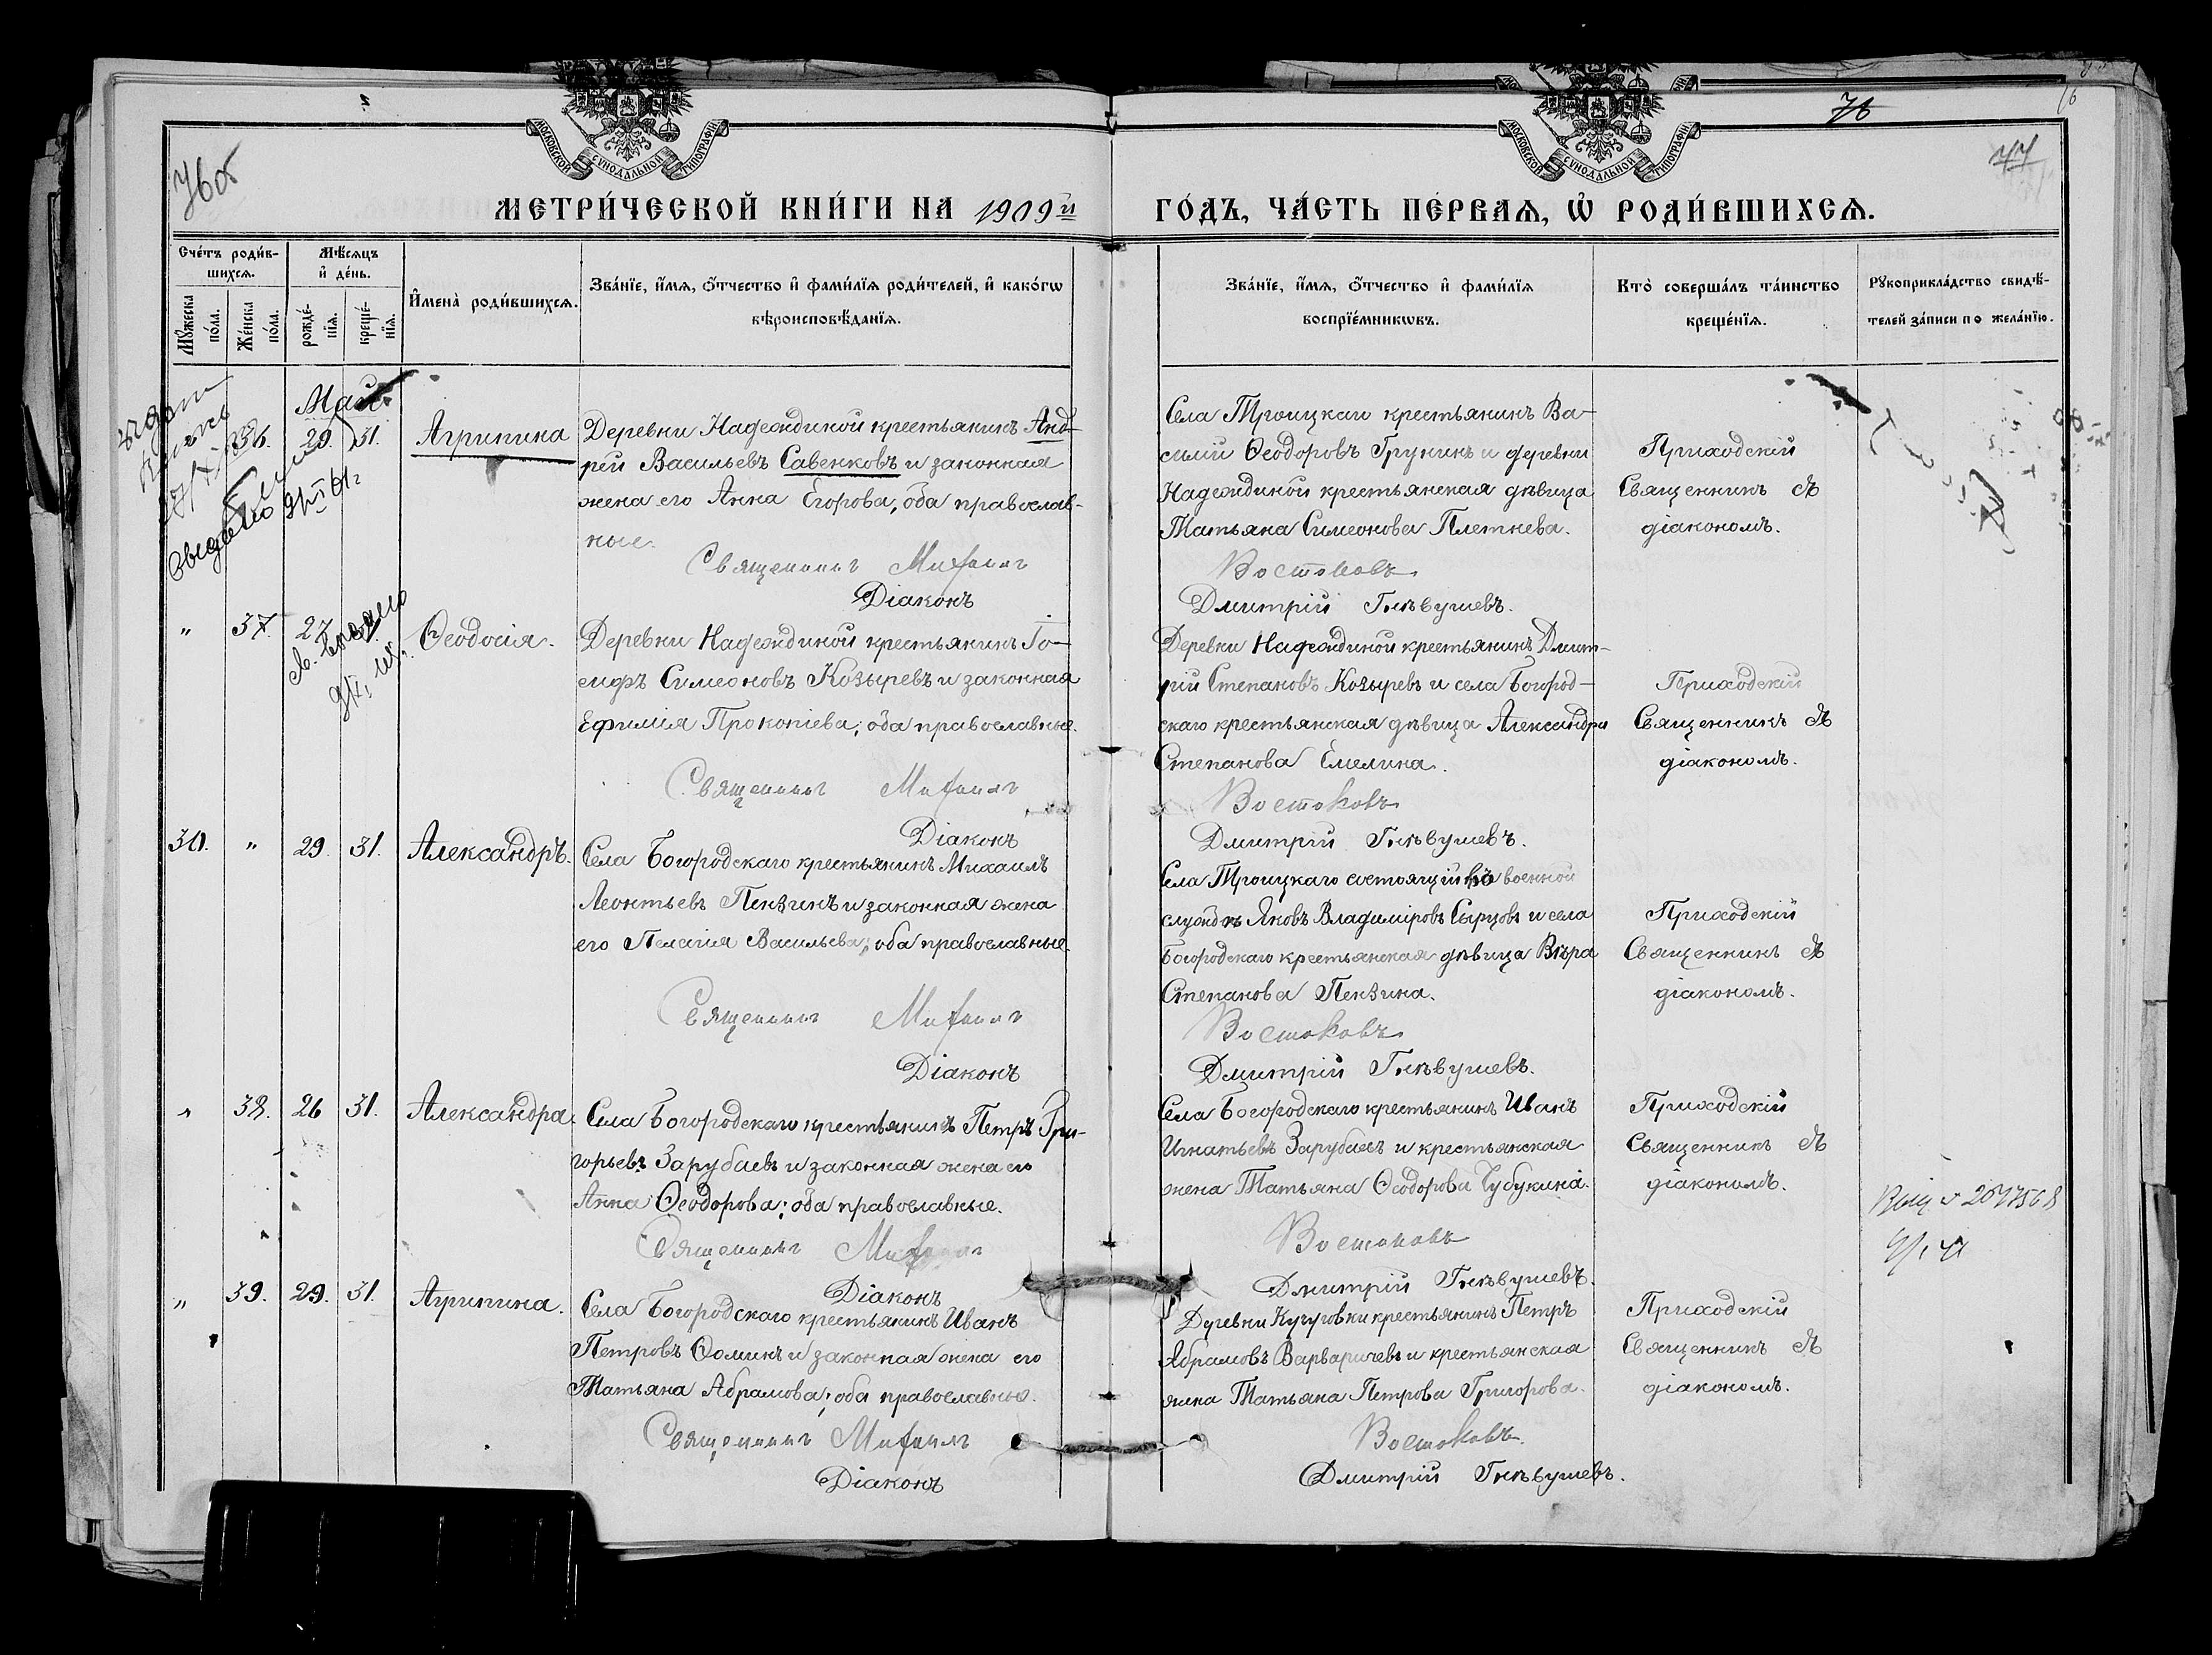 76об
76
77
16
МОСКОВСКОЙ СѴНОДАЛЬНОЙ ТИПОГРАФІИ
МОСКОВСКОЙ СѴНОДАЛЬНОЙ ТИПОГРАФІИ
МЕТРИ́ЧЕСКОЙ КНИ́ГИ НА 1909й ГО́ДЪ, ЧА́СТЬ ПЕ́РВАѦ, Ѡ҆ РОДИ́ВШИХСѦ.
Сче́тъ роди́в-
шихсѧ.
Мꙋ́жеска по́ла.
Же́нска по́ла.
Мѣ́сѧцъ
и҆ де́нь.
рожде́-
нїѧ.
креще́-
нїѧ.
И҆мена̀ роди́вшихсѧ.
Зва́нїе, и҆́мѧ, ѻ҆́тчество и҆ фами́лїѧ роди́телей, и҆ како́гѡ
вѣроисповѣ́данїѧ.
Зва́нїе, и҆́мѧ, ѻ҆́тчество и҆ фами́лїѧ
воспрїе́мникѡвъ.
Кто̀ соверша́лъ та́инство
креще́нїѧ.
Рꙋкоприкла́дство свидѣ́-
телей за́писи по жела́нїю.
Май
36. 29. 31. Агрипина
Деревни Надеждиной крестьянинъ Анд-
рей Васильевъ Савенковъ и законная
жена его Анна Егорова, оба православ-
ные.
Священникъ Михаилъ
Діаконъ
Села Троицкаго крестьянинъ Ва-
силій Ѳеодоровъ Грунинъ и деревни
Надеждиной крестьянская дѣвица
Татьяна Симеонова Плетнева.
Востоковъ
Дмитрій Гнѣвушевъ.
Приходскій
Священникъ съ
діакономъ.
" 37. 27 Ѳеодосія.
Деревни Надеждиной крестьянинъ Іо-
сифъ Симеоновъ Козыревъ и законная
Ефимія Прокопіева; оба православные.
Священникъ Михаилъ
Діаконъ
Деревни Надеждиной крестьянинъ Дмит-
рій Степановъ Козыревъ и села Богород-
скаго крестьянская дѣвица Александра
Степанова Емелина.
Востоковъ
Дмитрій Гнѣвушевъ.
Приходскій
Священникъ съ
діакономъ.
30. " 29. 31. Александръ.
Села Богородскаго крестьянинъ Михаилъ
Леонтьевъ Пензинъ и законная жена
его Пелагія Васильева; оба православные.
Священникъ Михаилъ
Діаконъ
Села Троицкаго состоящій на военной
службѣ Яковъ Владиміровъ Сырцовъ и села
Богородскаго крестьянская дѣвица Вѣра
Степанова Пензина.
Востоковъ
Дмитрій Гнѣвушевъ.
Приходскій
Священникъ съ
діакономъ.
" 38. 26 31. Александра.
Села Богородскаго крестьянинъ Петръ Гри-
горьевъ Зарубаевъ и законная жена его
Анна Ѳеодорова; оба православные.
Священникъ Михаилъ
Діаконъ
Села Богородскаго крестьянинъ Иванъ
Игнатьевъ Зарубаевъ и крестьянская
жена Татьяна Ѳеодорова Чубукина.
Востоковъ
Дмитрій Гнѣвушевъ.
Приходскій
Священникъ съ
діакономъ.
" 39. 29. 31. Агрипина.
Села Богородскаго крестьянинъ Иванъ
Петровъ Ѳоминъ и законная жена его
Татьяна Абрамова; оба православные.
Священникъ Михаилъ
Діаконъ
Деревни Кучуговки крестьянинъ Петръ
Абрамовъ Варваричевъ и крестьянская
жена Татьяна Петрова Григорова.
Востоковъ.
Дмитрій Гнѣвушевъ.
Приходскій
Священникъ съ
діакономъ.